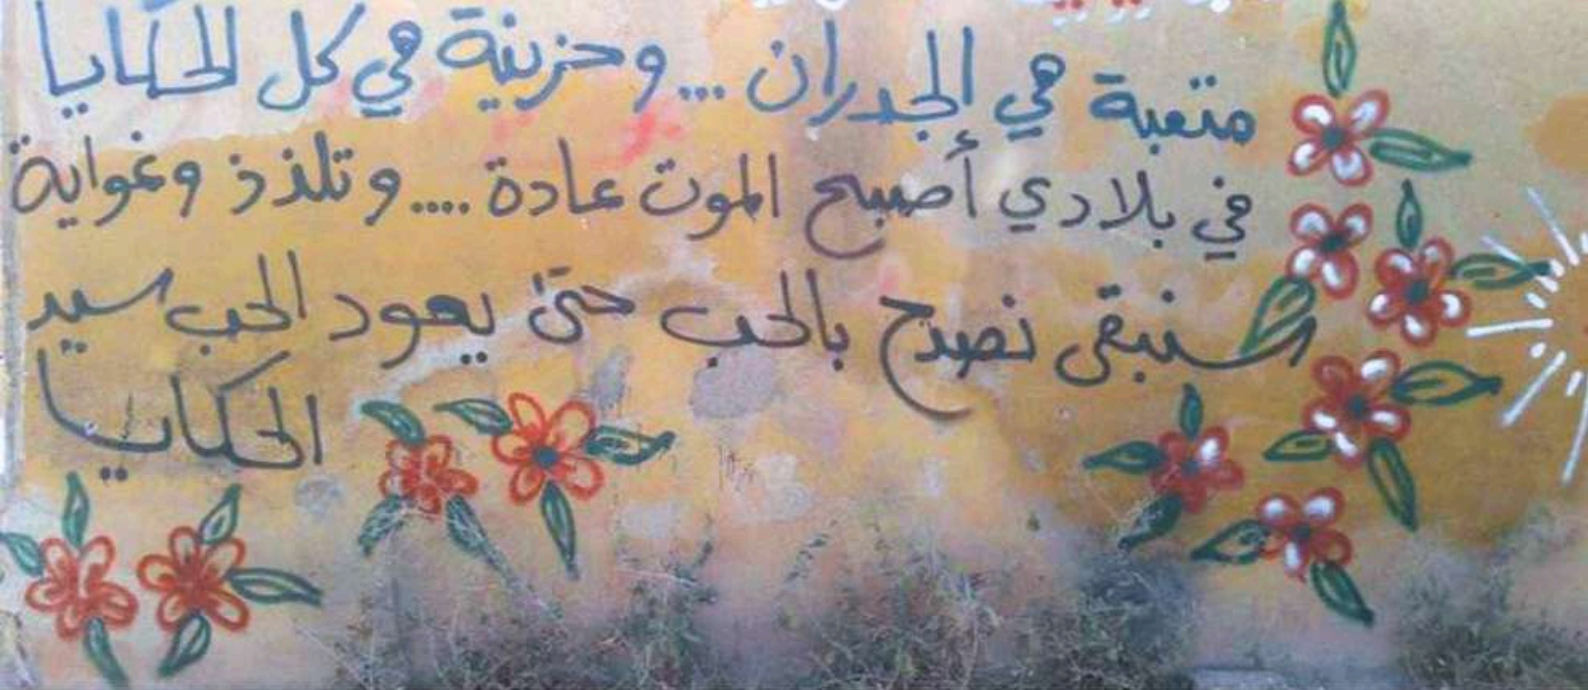 متعبة هي الجدران ... وحزينة هي كل الحكايا
في بلادي أصبح الموت عادة .... وتلذذ وغواية
سنبقى نصدح بالحب حتى يعود الحب سيد
الحكايا